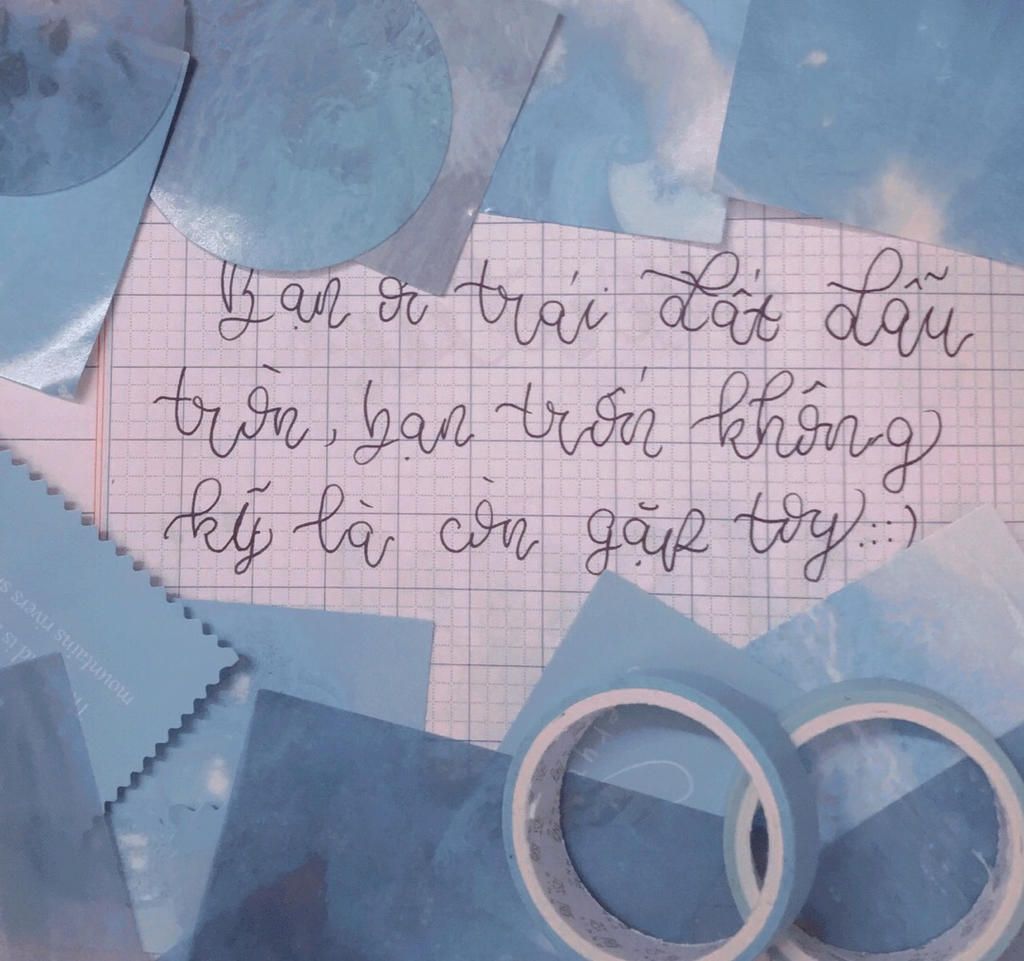 Bạn ơi trái đất dẫu
tròn, bạn trốn không
kỹ là còn gặp toy :::)
mountains rivers